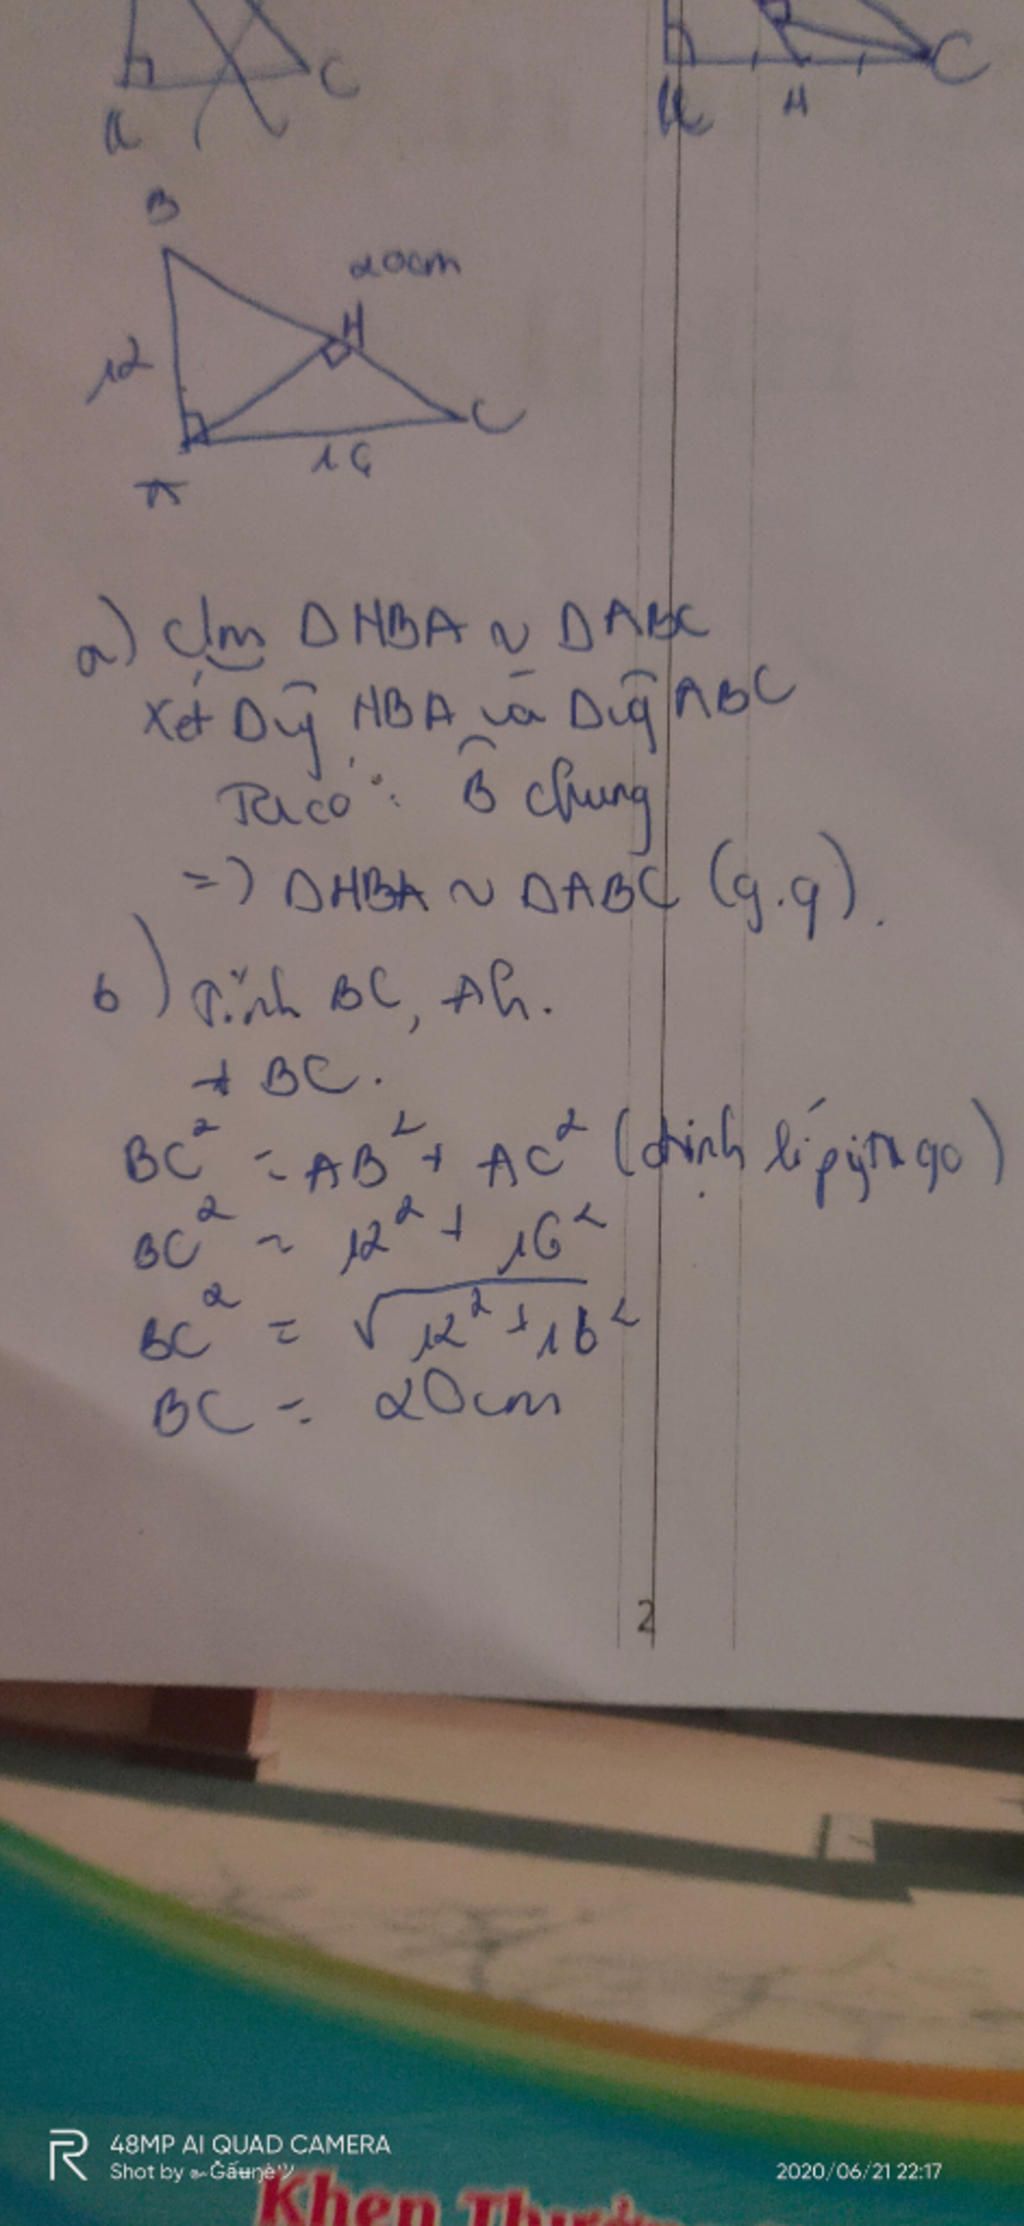 C
A
C
A H
B
20cm
H
12
C
16
A
a) C/m ΔHBA ~ ΔABC
Xét Δvg HBA và Δvg ABC
Ta có: B̂ chung
=> ΔHBA ~ ΔABC (g.g).
b) Tính BC, Ah.
+ BC.
BC² = AB² + AC² (định lí pytago)
BC² = 12² + 16²
BC² = √12² + 16²
BC = 20cm
2
48MP AI QUAD CAMERA
Shot by
2020/06/21 22:17
Khen Thưởng